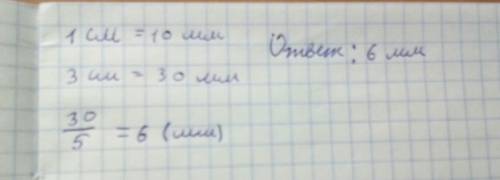 1 см = 10 мм
3 см = 30 мм
30/5 = 6 (мм)
Ответ: 6 мм